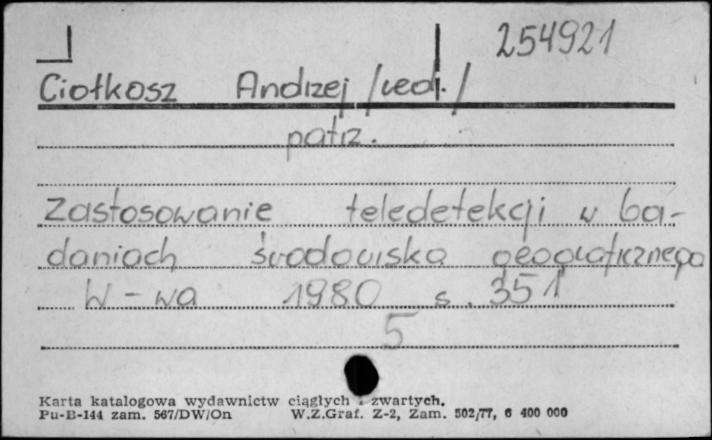 254921
Ciołkosz Andrzej /red./
patrz.
Zastosowanie teledetekcji w ba-
daniach środowiska geograficznego
W-wa 1980 s. 351
5
Karta katalogowa wydawnictw ciągłych i zwartych.
Pu-B-144 zam. 567/DW/On W.Z.Graf. Z-2, Zam. 502/77, 6 400 000